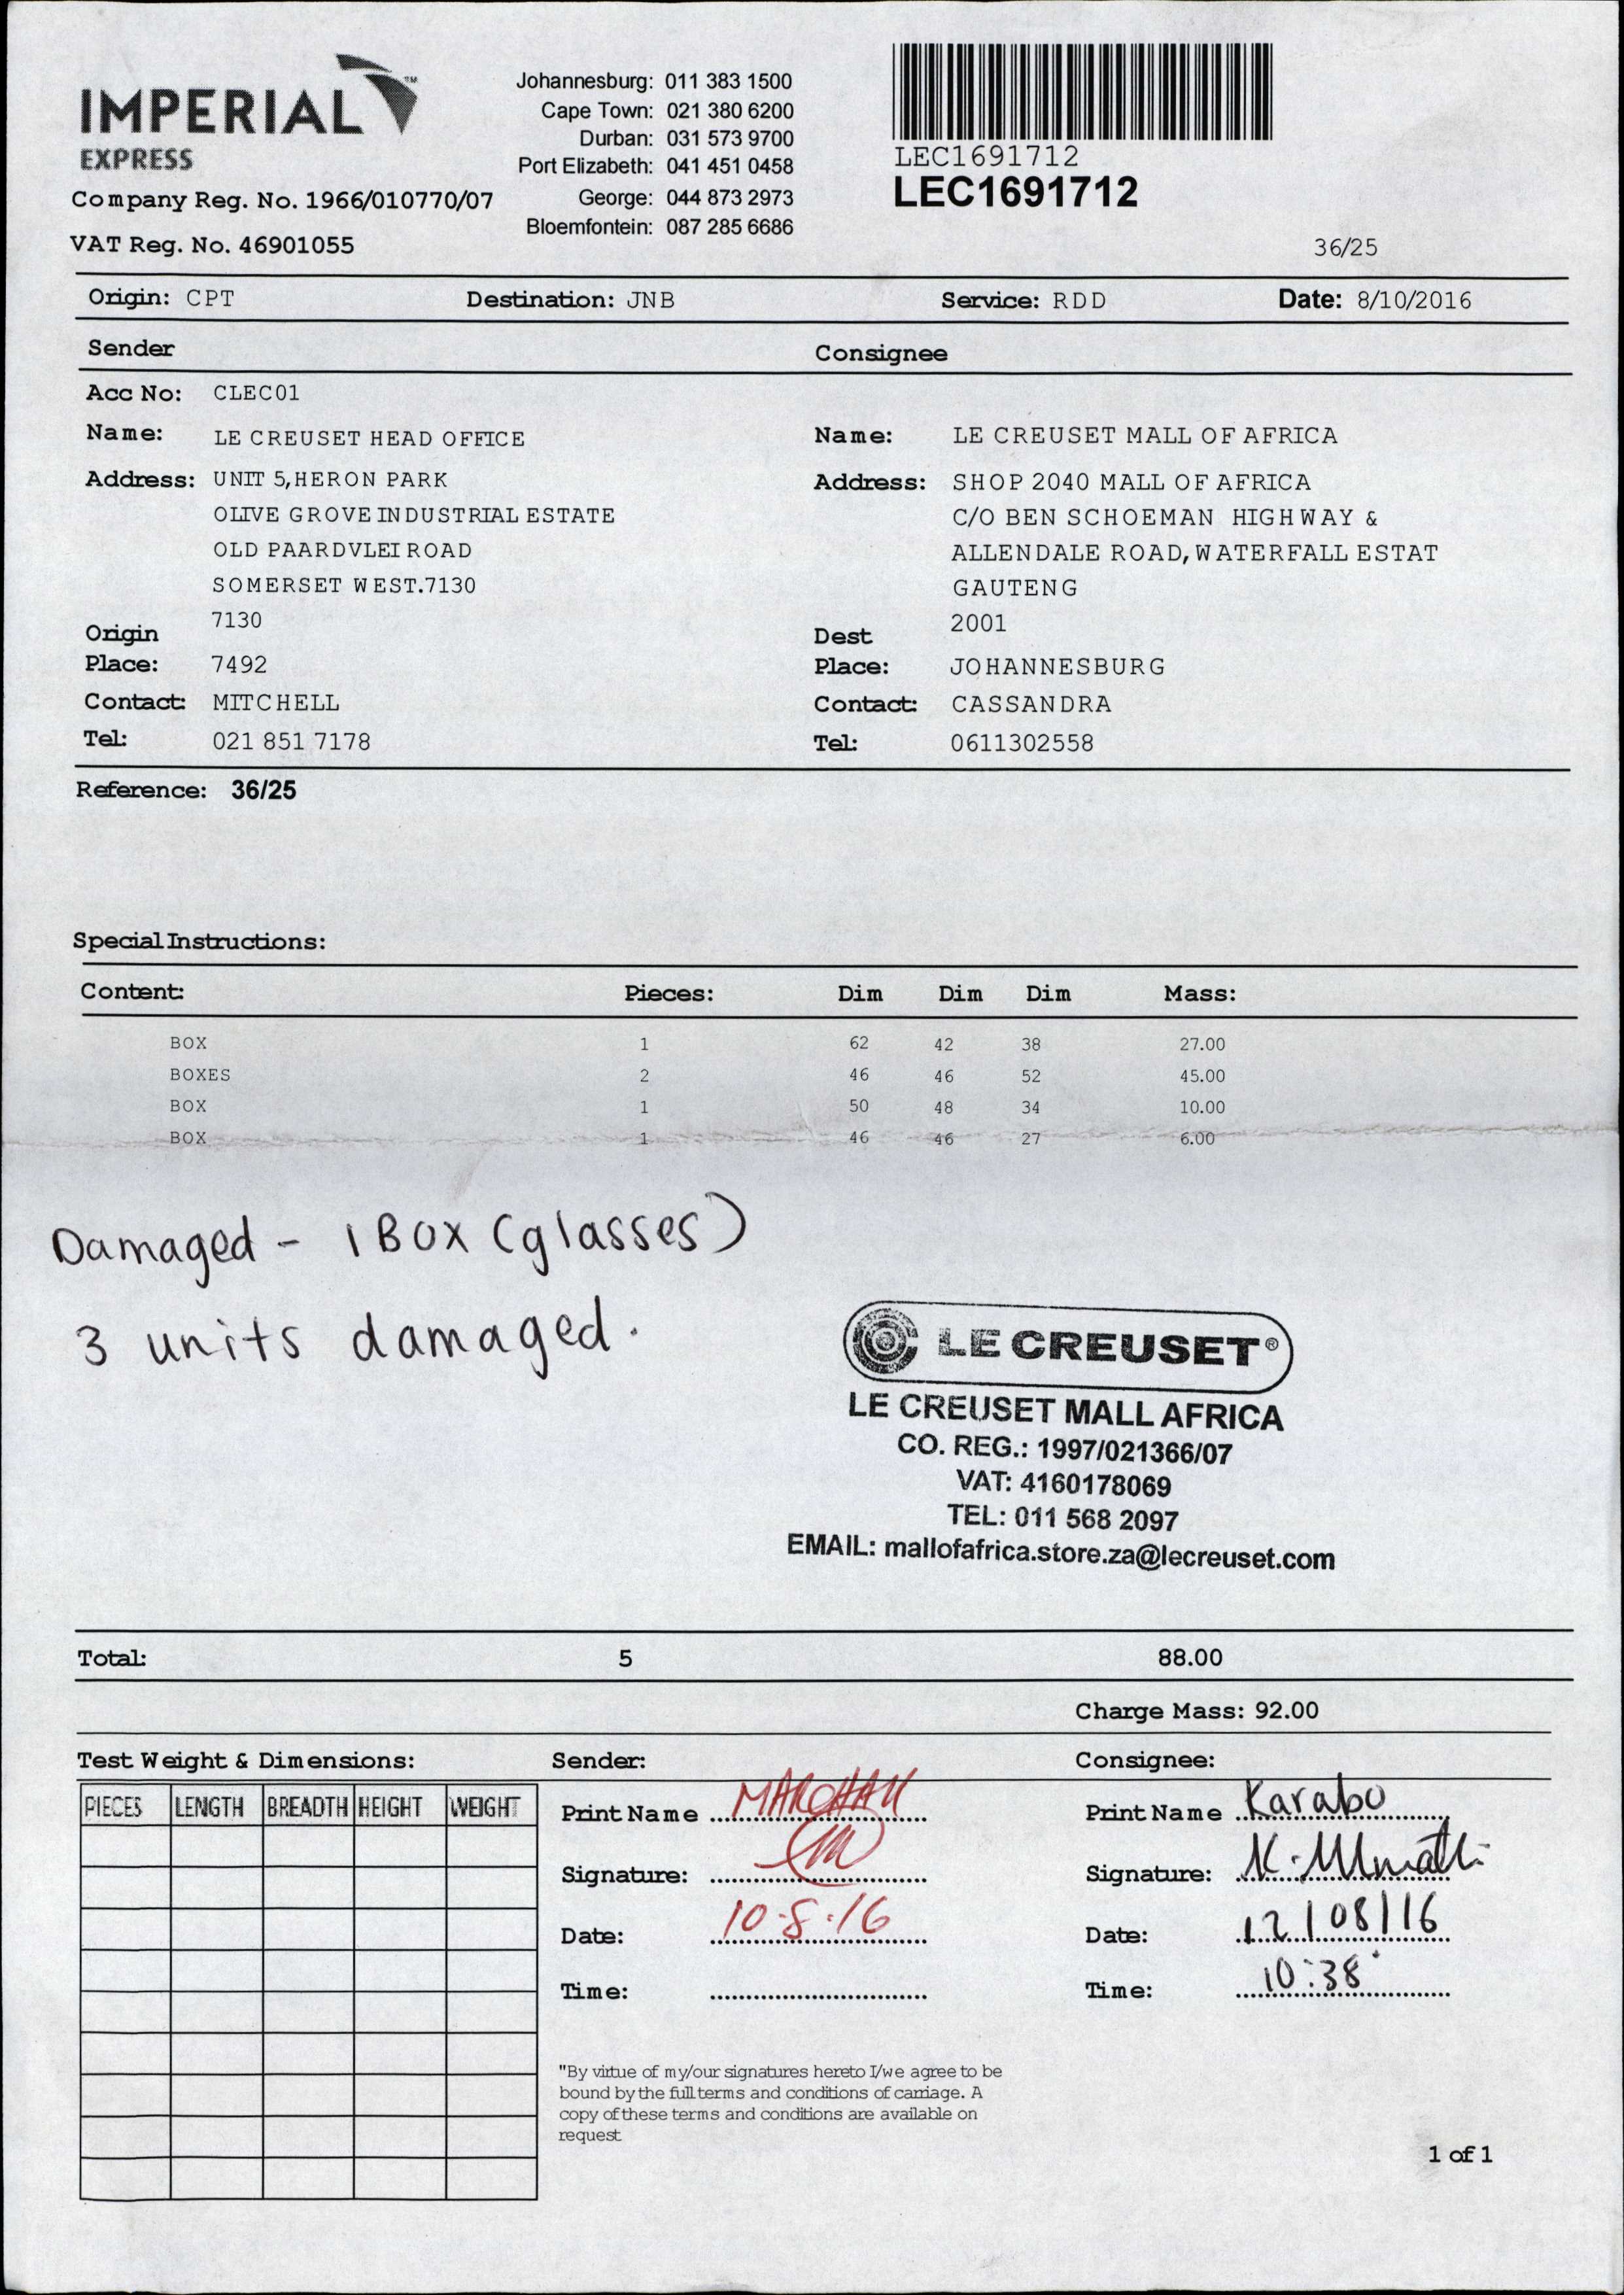 IMPERIAL™
EXPRESS
Company Reg. No. 1966/010770/07
VAT Reg. No. 46901055
Johannesburg: 011 383 1500
Cape Town: 021 380 6200
Durban: 031 573 9700
Port Elizabeth: 041 451 0458
George: 044 873 2973
Bloemfontein: 087 285 6686
LEC1691712
LEC1691712
36/25
Origin: CPT Destination: JNB Service: RDD Date: 8/10/2016
Sender
Acc No: CLEC01
Name: LE CREUSET HEAD OFFICE
Address: UNIT 5,HERON PARK
OLIVE GROVE INDUSTRIAL ESTATE
OLD PAARDVLEI ROAD
SOMERSET WEST.7130
7130
Origin
Place: 7492
Contact: MITCHELL
Tel: 021 851 7178
Consignee
Name: LE CREUSET MALL OF AFRICA
Address: SHOP 2040 MALL OF AFRICA
C/O BEN SCHOEMAN HIGHWAY &
ALLENDALE ROAD,WATERFALL ESTAT
GAUTENG
2001
Dest
Place: JOHANNESBURG
Contact: CASSANDRA
Tel: 0611302558
Reference: 36/25
Special Instructions:
Content: Pieces: Dim Dim Dim Mass:
BOX 1 62 42 38 27.00
BOXES 2 46 46 52 45.00
BOX 1 50 48 34 10.00
BOX 1 46 46 27 6.00
Damaged - 1 BOX (glasses)
3 units damaged.
LE CREUSET®
LE CREUSET MALL AFRICA
CO. REG.: 1997/021366/07
VAT: 4160178069
TEL: 011 568 2097
EMAIL: mallofafrica.store.za@lecreuset.com
Total: 5 88.00
Charge Mass: 92.00
Test Weight & Dimensions:
PIECES LENGTH BREADTH HEIGHT WEIGHT
Sender:
Print Name
Signature:
Date: 10.8.16
Time:
Consignee:
Print Name Karabo
Signature:
Date: 12/08/16
Time: 10:38
"By virtue of my/our signatures hereto I/we agree to be
bound by the full terms and conditions of carriage. A
copy of these terms and conditions are available on
request
1 of 1